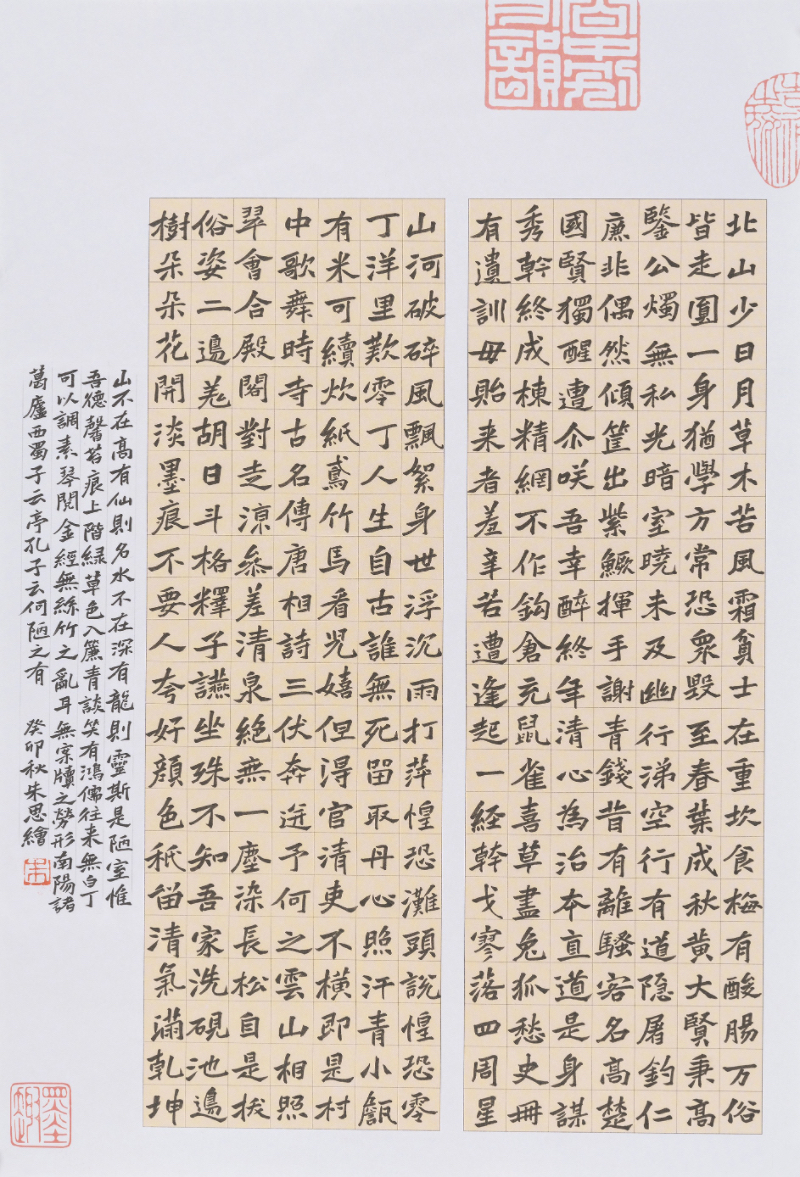 北山少日月草木苦風霜貧士在重坎食梅有酸腸万俗
皆走圓一身猶學方常恐衆毀至春葉成秋黄大賢秉高
鑒公燭無私光暗室曉未及幽行涕空行有道隐屠釣仁
廉非偶然傾筐出紫鱖揮手謝青錢昔有離騷客名高楚
國賢獨醒遭尒咲吾幸醉終年清心為治本直道是身謀
秀幹終成棟精網不作鈎倉充鼠雀喜草盡兔狐愁史冊
有遺訓毋貽来者羞辛苦遭逢起一經幹戈寥落四周星
山河破碎風飄絮身世浮沉雨打萍惶恐灘頭説惶恐零
丁洋里歎零丁人生自古誰無死留取丹心照汗青小甔
有米可續炊紙鳶竹馬看兒嬉但淂官清吏不横即是村
中歌舞時寺古名傳唐相詩三伏奔迸予何之雲山相照
翠會合殿閣對走涼叅差清泉絶無一塵染長松自是拔
俗姿二邊羌胡日斗格釋子讌坐殊不知吾家洗硯池邊
樹朵朵花開淡墨痕不要人夸好顔色秖留清氣滿乾坤
山不在高有仙則名水不在深有龍則靈斯是陋室惟
吾德馨苔痕上階緑草色入簾青談笑有鴻儒往来無白丁
可以調素琴閲金經無絲竹之亂耳無案牘之勞形南陽諸
葛廬西蜀子云亭孔子云何陋之有 癸卯秋朱思繪
朱